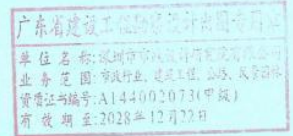 广东省建设工程勘察设计出图专用章
单位名称:深圳市市政设计研究院有限公司
业务范围:市政行业、建筑工程、公路、风景园林
资质证书编号:A144002073(甲级)
有效期至:2028年12月22日